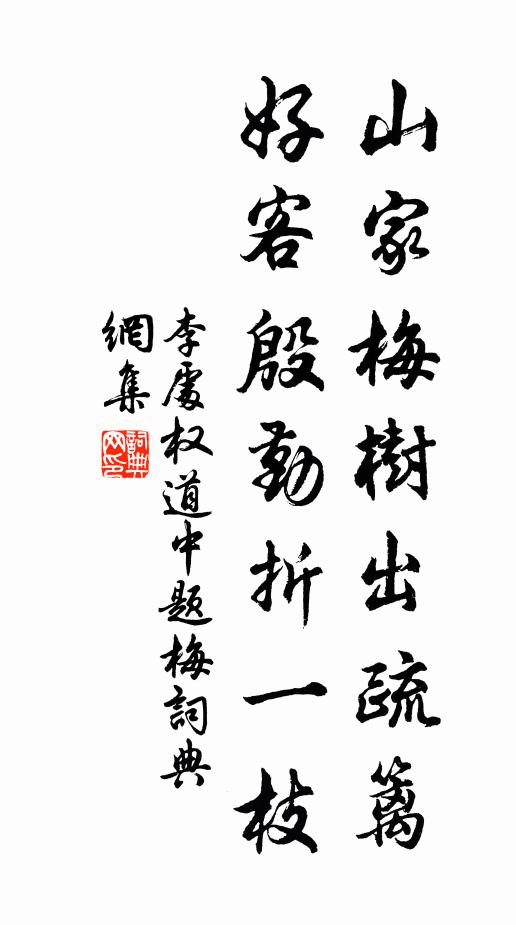 山家梅樹出疏籬
好客殷勤折一枝
李處权道中題梅詞典
網集
詞典网印